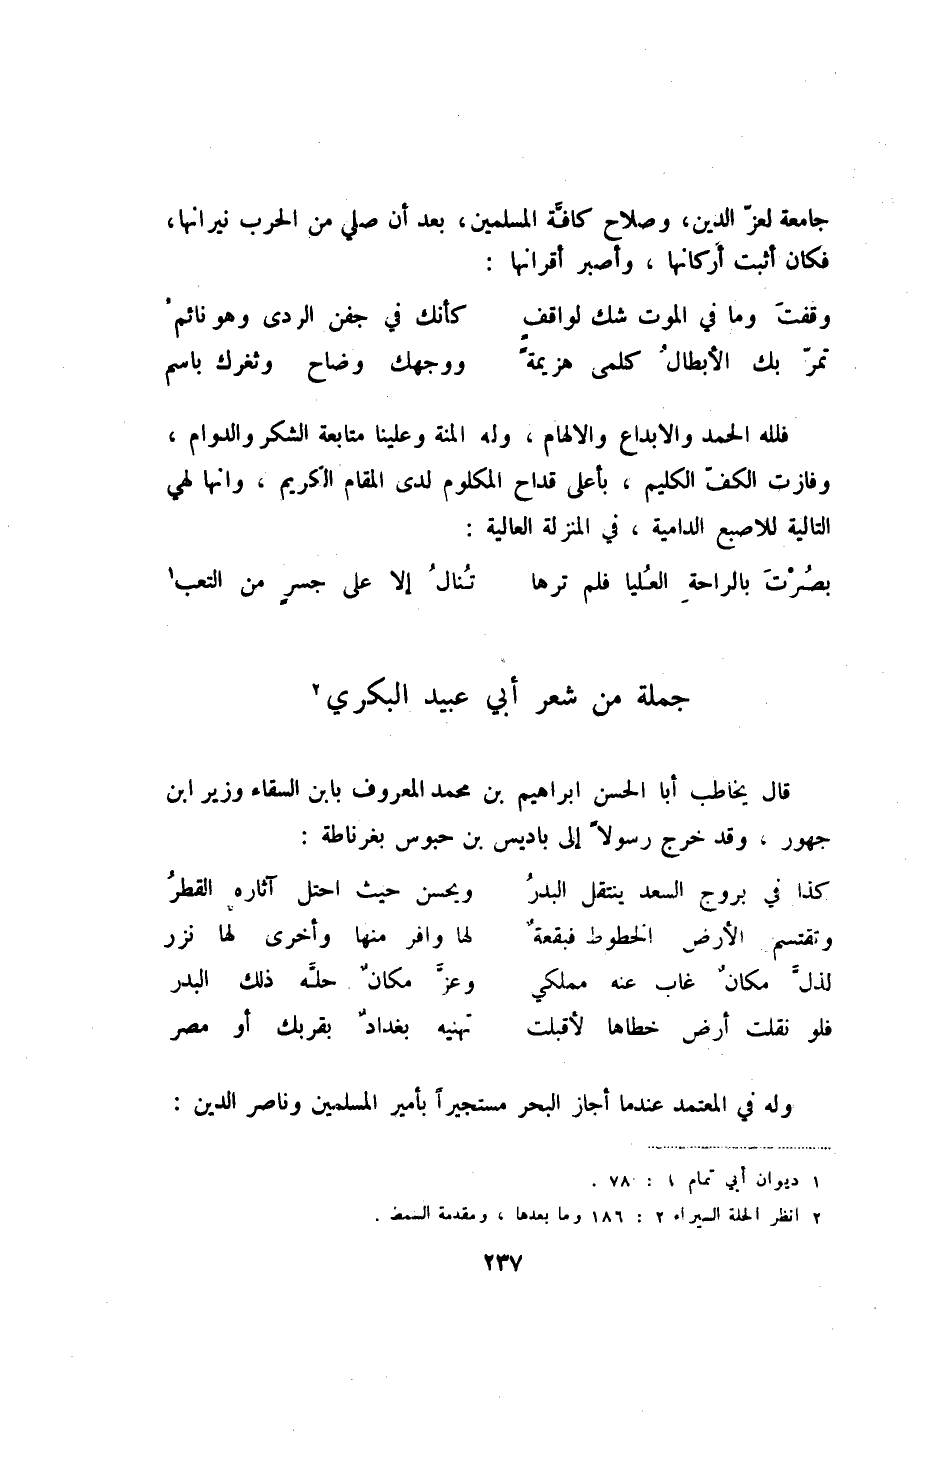 جامعة لعزّ الدين، وصلاح كافَّة المسلمين، بعد أن صلي من الحرب نيرانها،
فكان أثبت أركانها ، وأصبر أقرانها :
وقفتَ وما في الموت شك لواقفٍ كأنك في جفن الردى وهو نائمُ
تمرّ بك الأبطالُ كلمى هزيمةً ووجهك وضاح وثغرك باسم
فلله الحمد والابداع والالهام ، وله المنة وعلينا متابعة الشكر والدوام ،
وفازت الكفّ الكليم ، بأعلى قداح المكلوم لدى المقام الكريم ، وانها لهي
التالية للاصبع الدامية ، في المنزلة العالية :
بصُرْتَ بالراحةِ العُليا فلم ترها تُنالُ إلا على جسرٍ من التعب١
جملة من شعر أبي عبيد البكري٢
قال يخاطب أبا الحسن ابراهيم بن محمد المعروف بابن السقاء وزير ابن
جهور ، وقد خرج رسولاً إلى باديس بن حبوس بغرناطة :
كذا في بروج السعد ينتقل البدرُ ويحسن حيث احتل آثاره القطرُ
وتقتسم الأرض الحظوظ فبقعةٌ لها وافر منها وأخرى لها نزر
لذلَّ مكانٌ غاب عنه مملكي وعزَّ مكانٌ حلَّه ذلك البدر
فلو نقلت أرض خطاها لأقبلت تهنيه بغدادٌ بقربك أو مصر
وله في المعتمد عندما أجاز البحر مستجيراً بأمير المسلمين وناصر الدين :
١ ديوان أبي تمام ١ : ٧٨ .
٢ انظر الحلة السيراء ٢ : ١٨٦ وما بعدها ، ومقدمة السمط .
٢٣٧